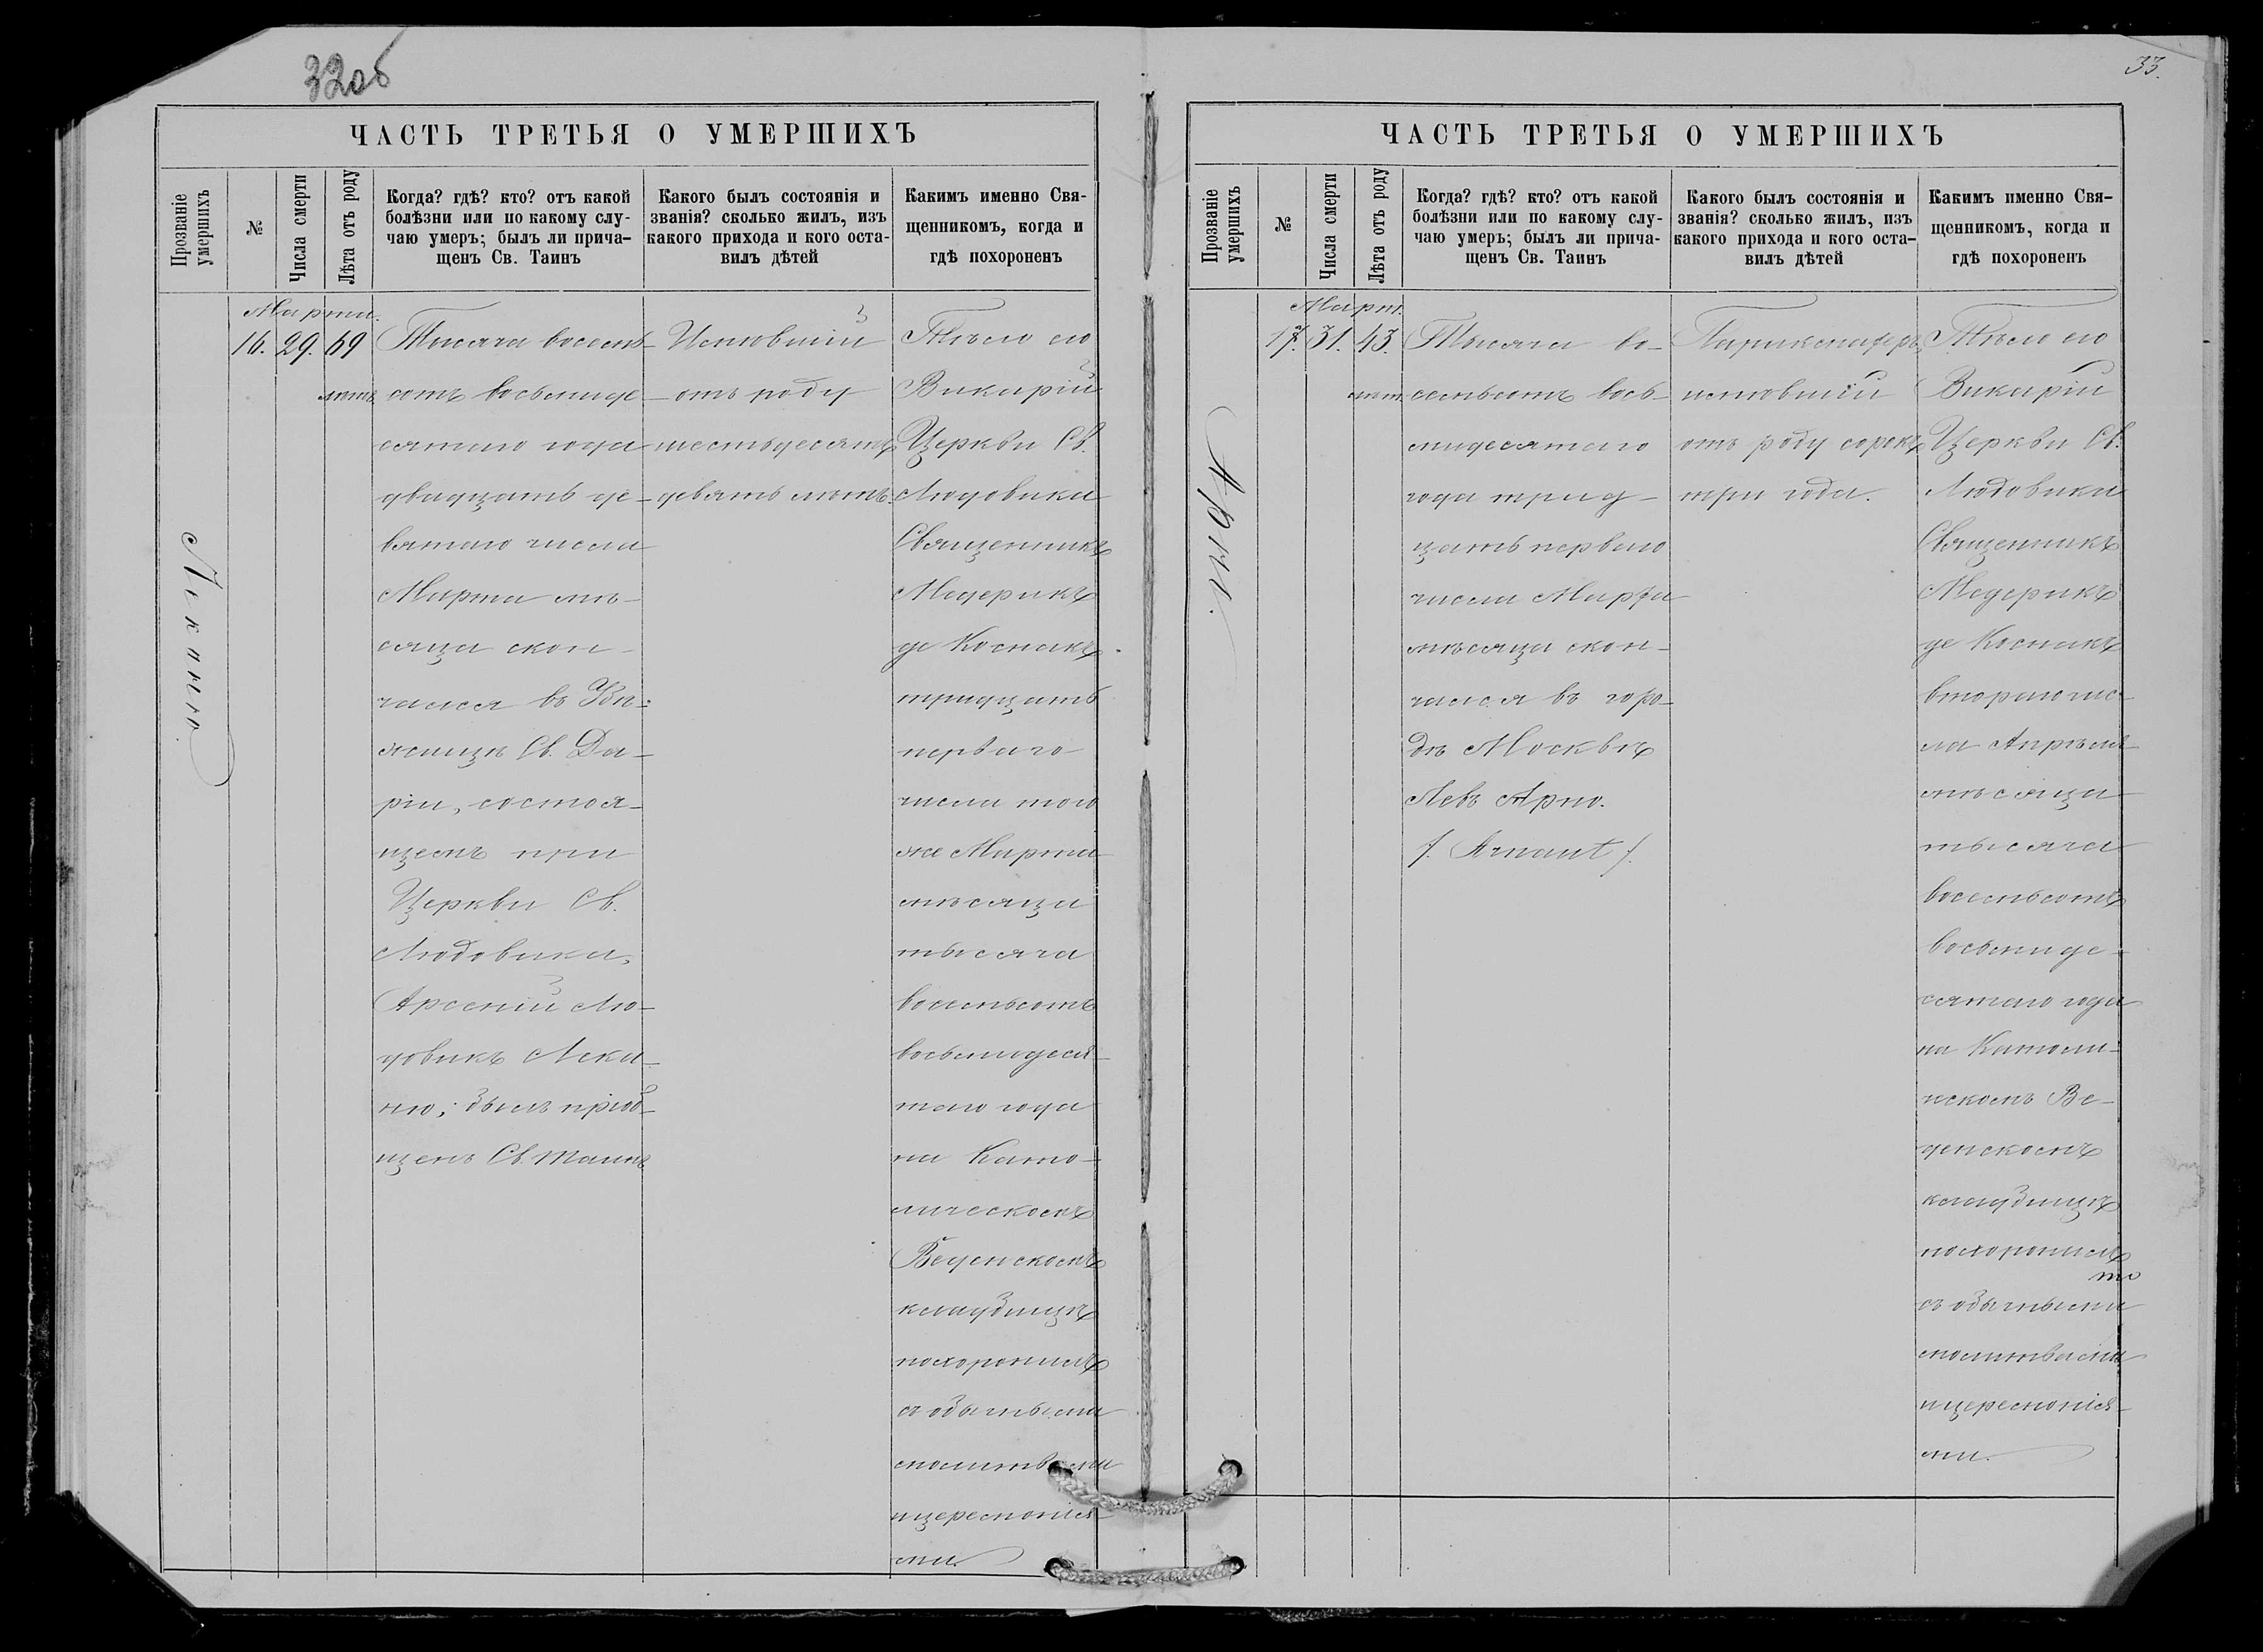 32об
ЧАСТЬ ТРЕТЬЯ О УМЕРШИХЪ
Прозваніе умершихъ
№
Числа смерти
Лѣта отъ роду
Когда? гдѣ? кто? отъ какой
болѣзни или по какому слу-
чаю умеръ; былъ ли прича-
щенъ Св. Таинъ
Какого былъ состоянія и
званія? сколько жилъ, изъ
какого прихода и кого оста-
вилъ дѣтей
Какимъ именно Свя-
щенникомъ, когда и
гдѣ похороненъ
Леканю
Марта.
16. 29. 69
лѣтъ
Тысяча восемь-
сотъ восьмиде-
сятаго года
двадцать де-
вятаго числа
Марта мѣ-
сяца скон-
чался въ
Св. Да-
ріи, состоя-
щемъ при
Церкви Св.
Людовика,
Арсеній Лю-
довикъ Лека-
ню; былъ пріоб-
щенъ Св. Таинъ
Исповѣд
отъ роду
шестьдесятъ
девять лѣтъ.
Тѣло его
Викарій
Церкви Св.
Людовика
Священникъ
Медерикъ
де Коснакъ
тридцать
перваго
числа того
же Марта
мѣсяца
тысяча
восемьсотъ
восьмидеся-
таго года
на Като-
лическомъ
Веденскомъ
кладбищѣ
похоронилъ
съ обычными
молитвами
и церемонія-
ми.
33.
ЧАСТЬ ТРЕТЬЯ О УМЕРШИХЪ
Прозваніе умершихъ
№
Числа смерти
Лѣта отъ роду
Когда? гдѣ? кто? отъ какой
болѣзни или по какому слу-
чаю умеръ; былъ ли прича-
щенъ Св. Таинъ
Какого былъ состоянія и
званія? сколько жилъ, изъ
какого прихода и кого оста-
вилъ дѣтей
Какимъ именно Свя-
щенникомъ, когда и
гдѣ похороненъ
Арно.
Март.
17. 31. 43.
лѣт.
Тысяча во-
семьсотъ вось-
мидесятаго
года трид-
цать перваго
числа Марта
мѣсяца скон-
чался въ горо-
дѣ Москвѣ
Левъ Арно.
/. Arnaut /.
Парикмахеръ,
отъ роду сорокъ
три года.
Тѣло его
Викарій
Церкви Св.
Людовика
Священникъ
Медерикъ
де Коснакъ
втораго чис-
ла Апрѣля
мѣсяца
тысяча
восемьсотъ
восьмиде-
сятаго года
на Католи-
ческомъ Ве-
денскомъ
кладбищѣ
похоронилъ
съ обычными
молитвами
и церемонія-
ми.